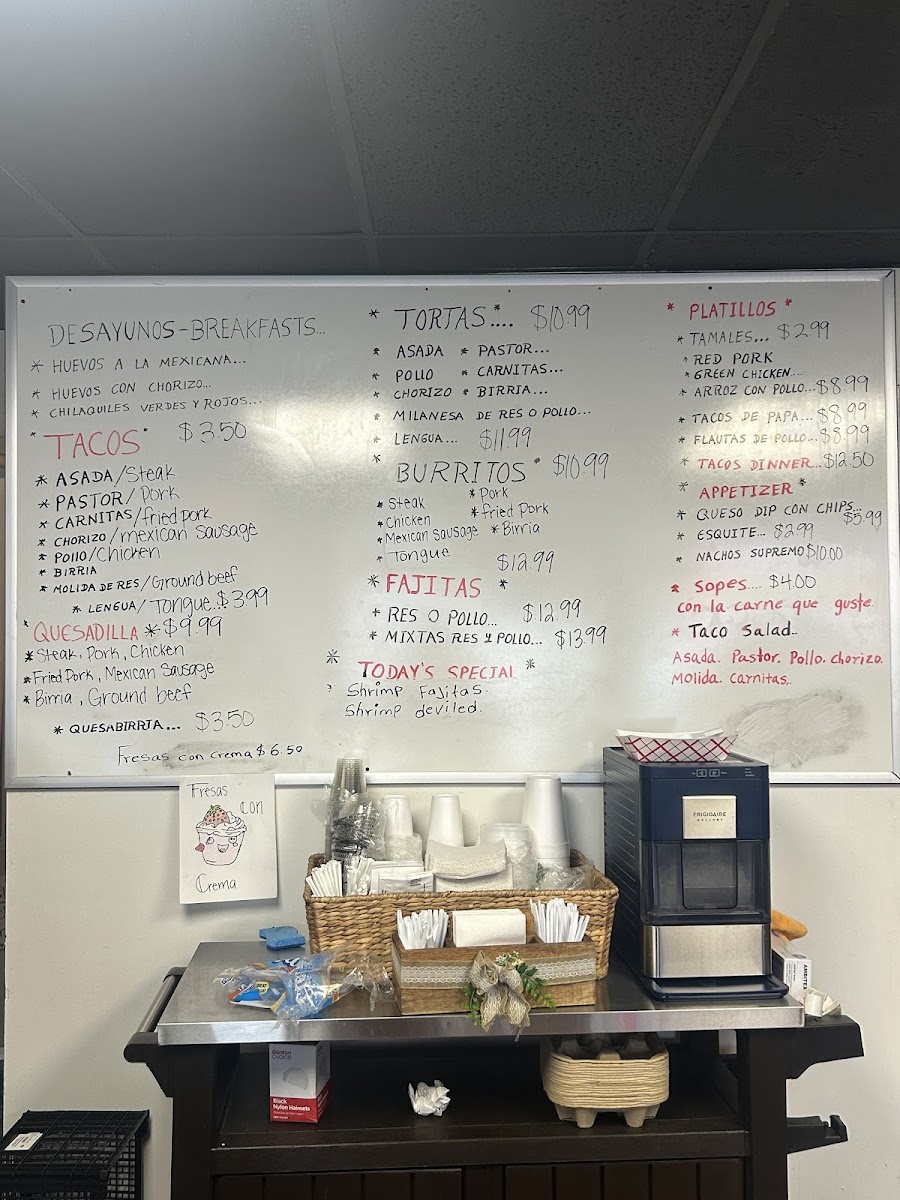 DESAYUNOS-BREAKFASTS...
* HUEVOS A LA MEXICANA...
* HUEVOS CON CHORIZO...
* CHILAQUILES VERDES Y ROJOS...
* TACOS * $3.50
* ASADA/Steak
* PASTOR/Pork
* CARNITAS/fried pork
* CHORIZO/mexican sausage
* POllO/Chicken
* BIRRIA
* MOLIDA DE RES/Ground beef
* LENGUA/Tongue..$3.99
* QUESADILLA *$9.99
* Steak, Pork, Chicken
* Fried Pork, Mexican Sausage
* Birria, Ground beef
* QUESABIRRIA... $3.50
Fresas con Crema $6.50
* TORTAS *.... $10.99
* ASADA * PASTOR...
* POLLO * CARNITAS...
* CHORIZO * BIRRIA...
* MILANESA DE RES O POLLO...
* LENGUA... $11.99
* BURRITOS * $10.99
* Steak * Pork
* Chicken * fried Pork
* Mexican Sausage * Birria
* Tongue $12.99
* FAJITAS *
+ RES O POLLO... $12.99
* MIXTAS RES Y POLLO... $13.99
* TODAY'S SPECIAL *
Shrimp Fajitas.
Shrimp deviled.
* PLATILLOS *
* TAMALES... $2.99
* RED PORK
* GREEN CHICKEN...
* ARROZ CON POLLO...$8.99
* TACOS DE PAPA...$8.99
* FLAUTAS DE POLLO...$8.99
* TACOS DINNER...$12.50
* APPETIZER *
* QUESO DIP CON CHIPS... $5.99
* ESQUITE... $2.99
* NACHOS SUPREMO $10.00
* Sopes.... $4.00
con la carne que guste.
* Taco Salad..
Asada. Pastor. Pollo. chorizo.
Molida. carnitas..
Fresas
con
Crema
FRIGIDAIRE
GALLERY
AMBITEX
Gordon
CHOICE
Black
Nylon Hairnets